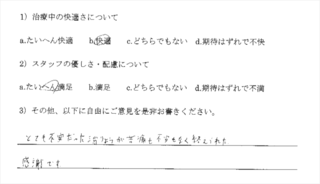 1）治療中の快適さについて
a.たいへん快適　b.快適　c.どちらでもない　d.期待はずれで不快
2）スタッフの優しさ・配慮について
a.たいへん満足　b.満足　c.どちらでもない　d.期待はずれで不満
3）その他、以下に自由にご意見を是非お書きください。
とても不安だった治りょうが痛みも不安もなく終えられた
感謝です